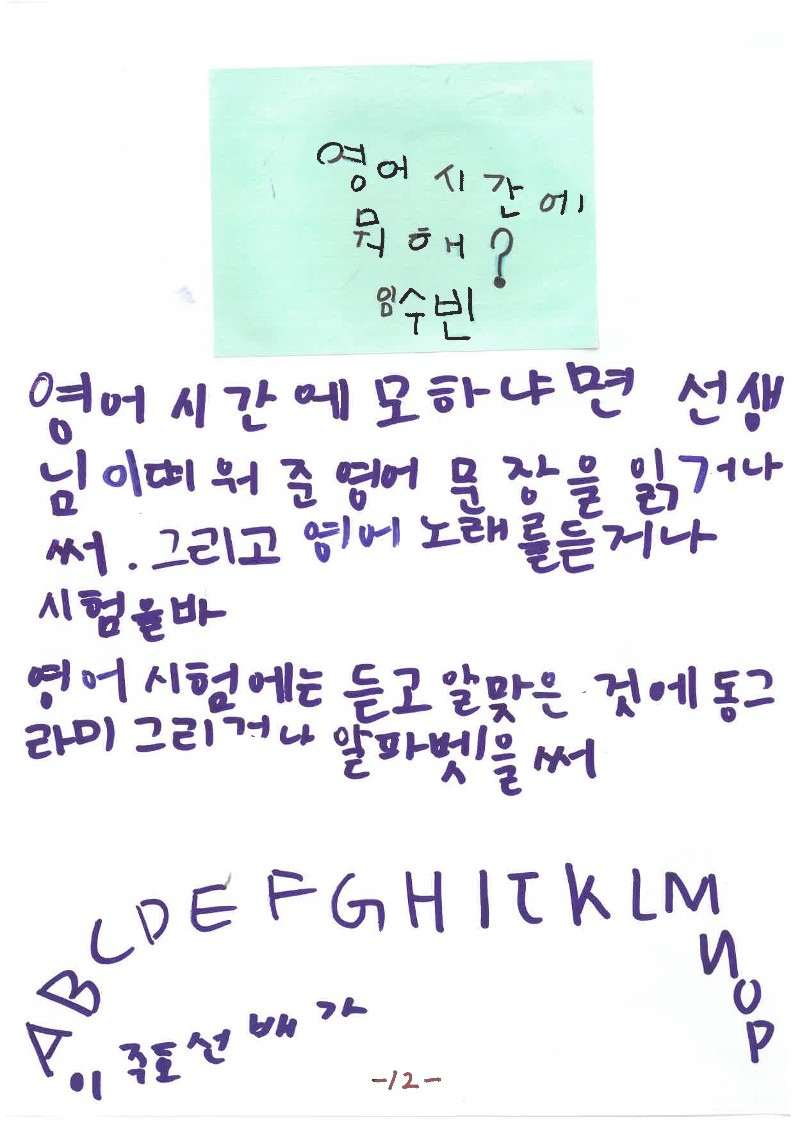 영어 시간에
뭐 해?
임수빈
영어 시간에 모하냐면 선생
님이 띠워 준 영어 문장을 읽거나
써. 그리고 영어 노래를듣거나
시험을바
영어 시험에는 듣고 알맞은 것에 동그
라미 그리거나 알파벳을 써
A B C D E F G H I J K L M N O P
이 죽토선배가
-12-